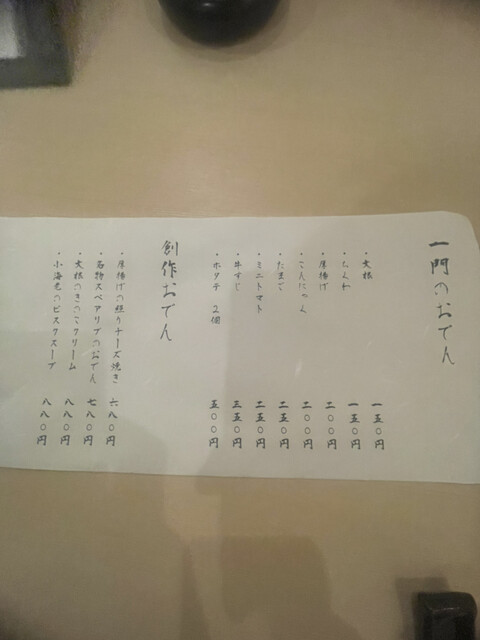 一門のおでん
・大根 一五〇円
・ちくわ 一五〇円
・厚揚げ 二〇〇円
・こんにゃく 二〇〇円
・たまご 二五〇円
・ミニトマト 二五〇円
・牛すじ 三五〇円
・ホタテ 2個 五〇〇円
創作おでん
・厚揚げの照りチーズ焼き 六八〇円
・名物スペアリブのおでん 七八〇円
・大根のきのこクリーム 八八〇円
・小海老のビスクスープ 八八〇円